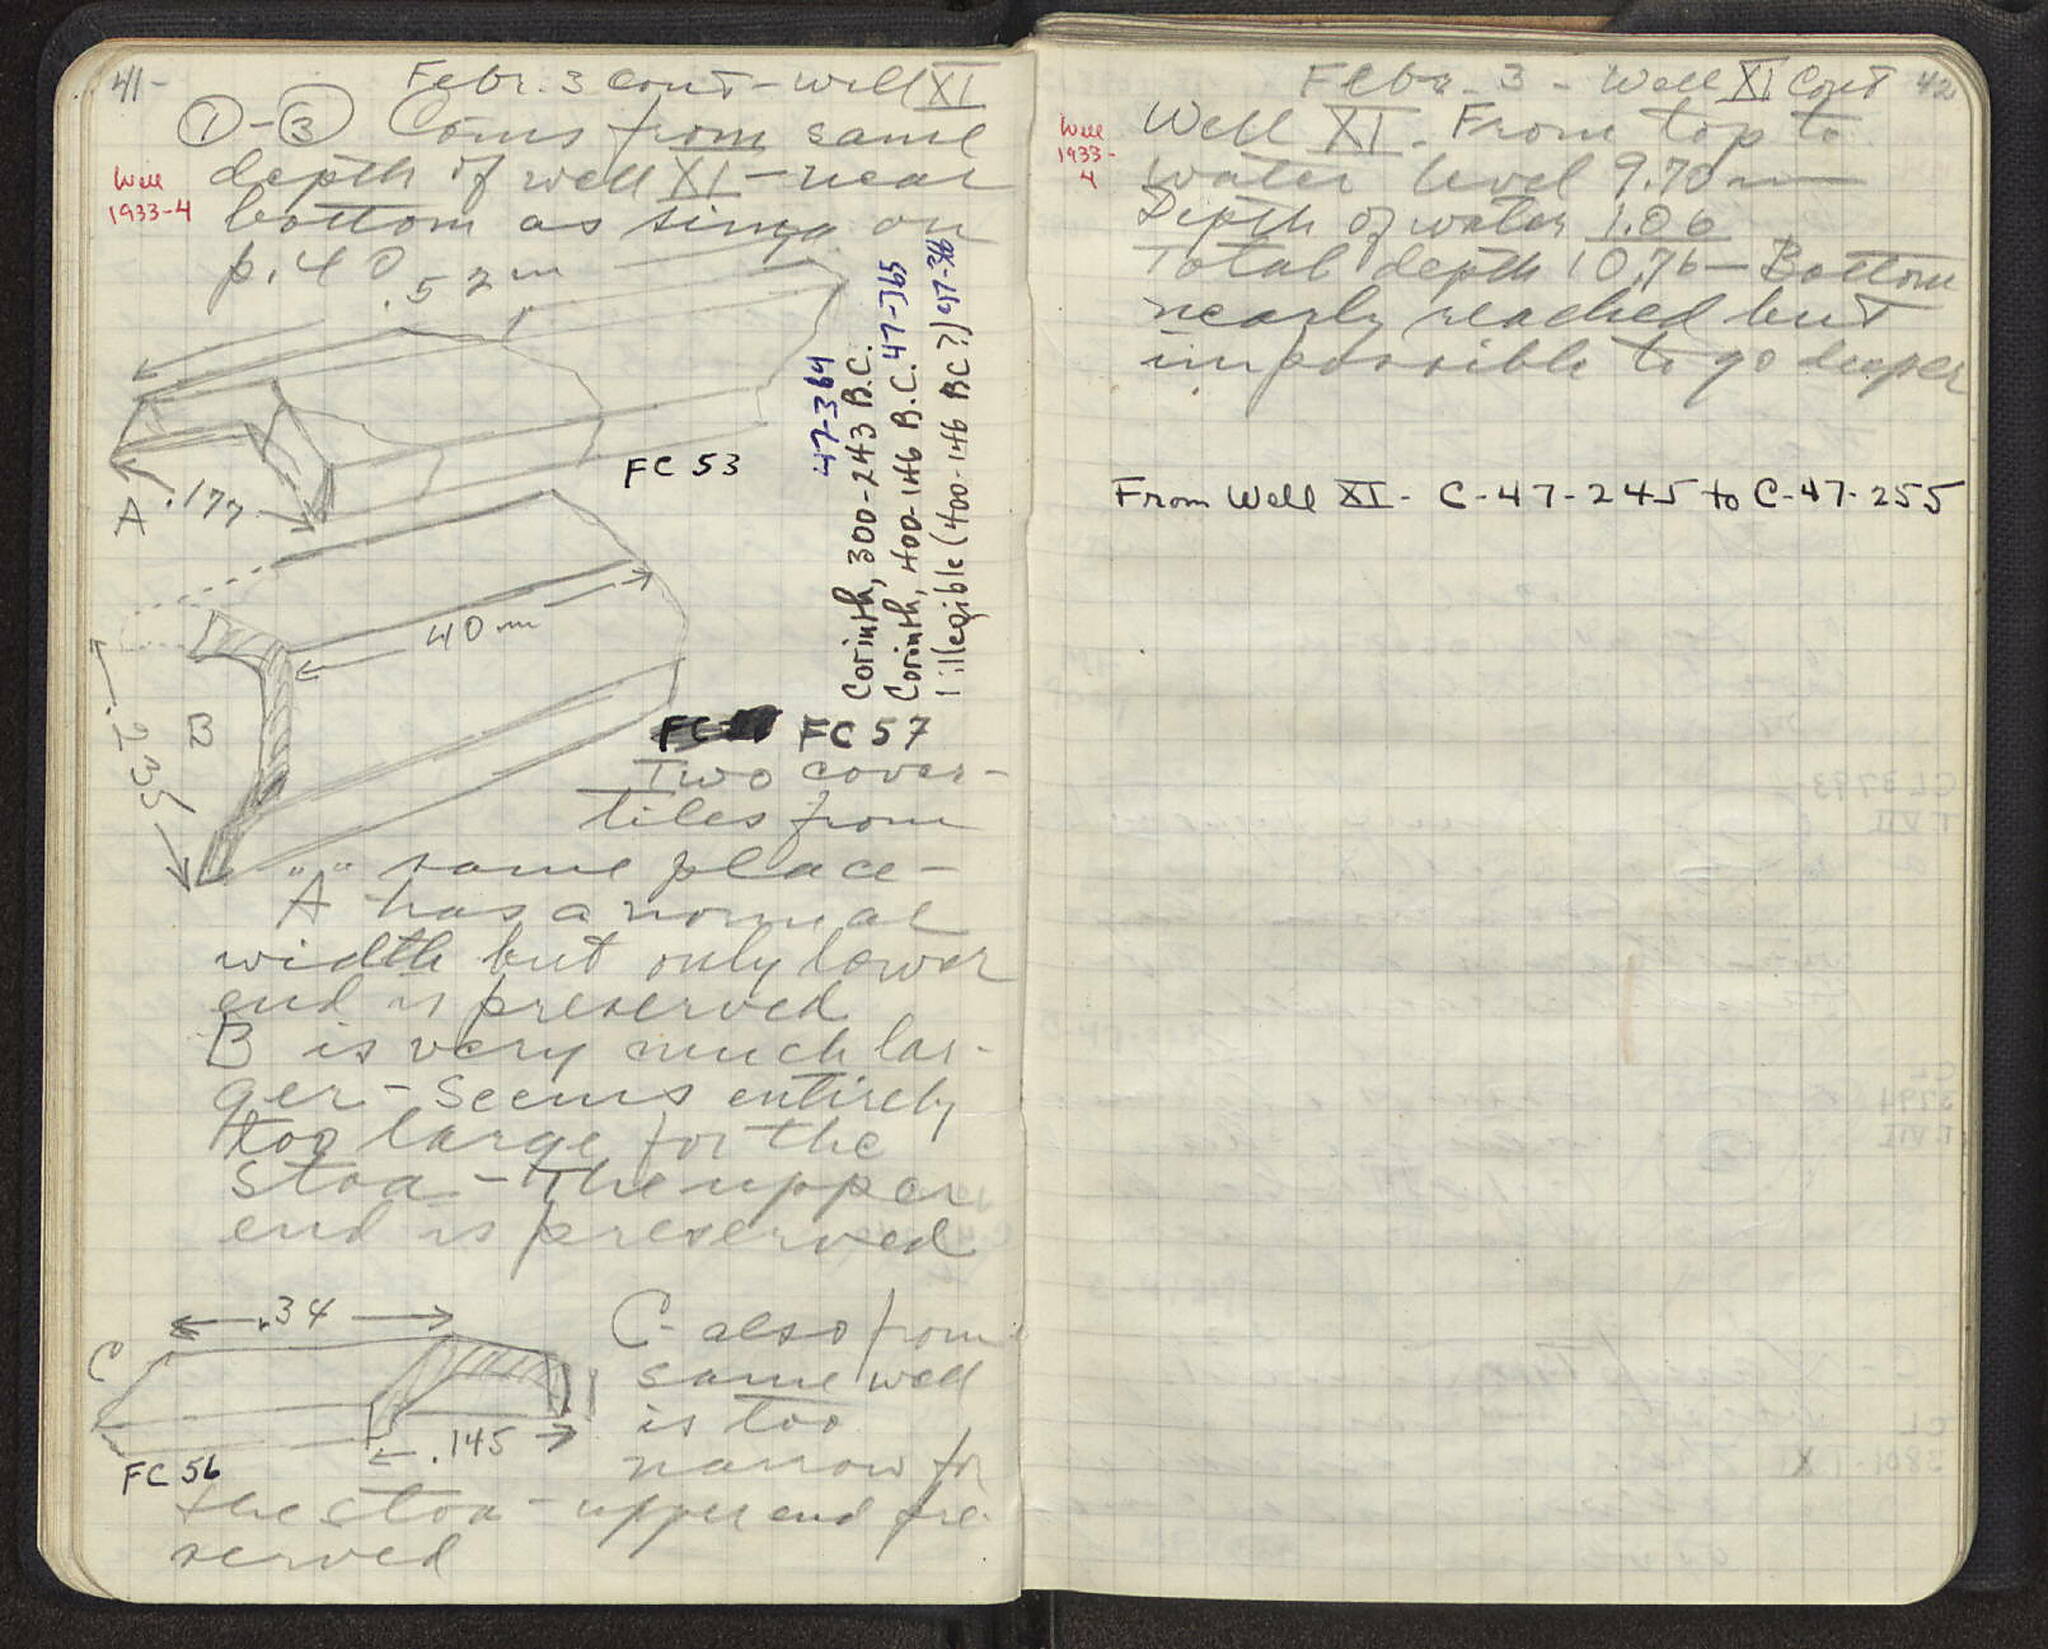 41-
Febr. 3 cont - Well XI
①-③ Coins from same
Well
1933-4
depth of well XI - near
bottom as sima on
p. 40
.52 m
FC 53
A .177
47-364
Corinth, 300-243 B.C.
Corinth, 400-146 B.C. 47-365
1 illegible (400-146 BC?) 47-366
40 m
B
.235
FC 57
Two cover-
tiles from
" " same place -
A has a normal
width but only lower
end is preserved
B is very much lar-
ger - seems entirely
too large for the
Stoa - The upper
end is preserved
.34
C
.145
FC 56
C - also from
same well
is too
narrow for
the stoa - upper end pre-
served
Febr. 3 - Well XI Cont 42
Well
1933-
4
Well XI. From top to
water level 9.70 m
Depth of water 1.06
Total depth 10.76 - Bottom
nearly reached but
impossible to go deeper
From Well XI - C-47-245 to C-47-255